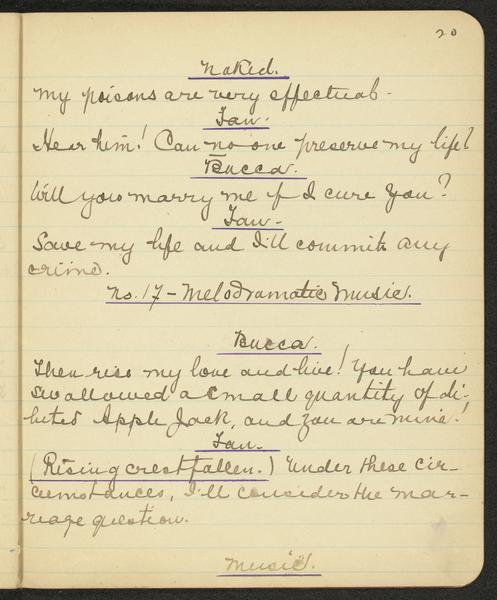 20
Naked.
My poisons are very effectual.
Fan.
Hear him! Can no one preserve my life?
Bucca.
Will you marry me if I cure you?
Fan.
Save my life and I'll commit any
crime.
No. 17 - Melodramatic Music.
Bucca.
Then rise my love and live! You have
swallowed a small quantity of di-
luted Apple Jack, and you are mine!
Fan.
(Rising crestfallen.) Under these cir-
cumstances, I'll consider the mar-
riage question.
Music.